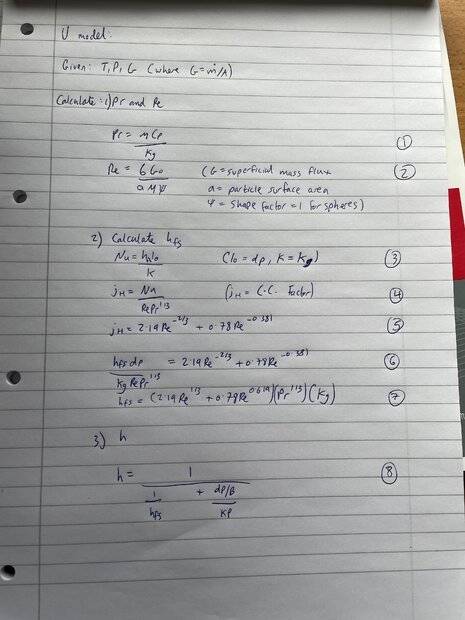 U model:
Given: T, P, G (where G = ṁ/A)
Calculate: 1) Pr and Re
Pr = MCp / Kg (1)
Re = 6G0 / aMψ (G = superficial mass flux (2)
a = particle surface area
Ψ = shape factor = 1 for spheres)
2) Calculate hfs
Nu = hfslo / K (lo = dp, K = Kg) (3)
jH = Nu / RePr^1/3 (jH = C.C. Factor) (4)
jH = 2.19Re^-2/3 + 0.78Re^-0.381 (5)
hfs dp / Kg RePr^1/3 = 2.19Re^-2/3 + 0.78Re^-0.381 (6)
hfs = (2.19Re^1/3 + 0.78Re^0.619)(Pr^1/3)(Kg) (7)
3) h
h = 1 / (1/hfs + (dp/B)/KP) (8)